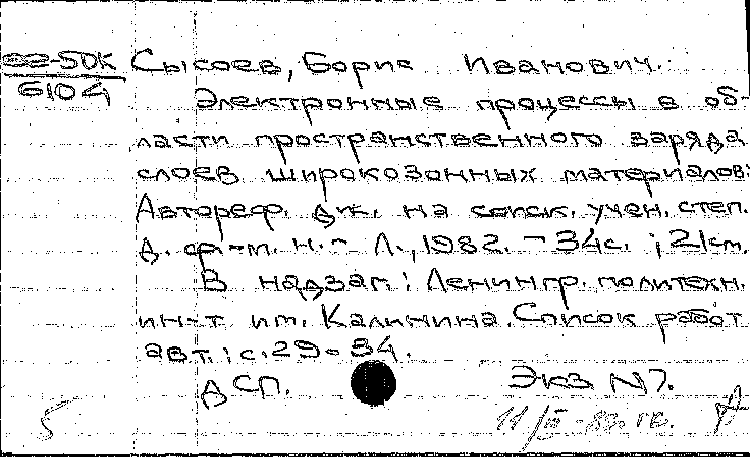 82-5ДК Сысоев, Борис Иванович.
6104
Электронные процессы в об-
ласти пространственного заряда
слоев широкозонных материалов:
Автореф. дис. на соиск. учен. степ.
д. ф.-м. н. - Л., 1982. - 34с. ; 21см.
В надзаг.: Ленингр. политехн.
ин-т им. Калинина. Список работ
авт.: с. 29-34.
ДСП. Экз N7.
5 11/III-83г.